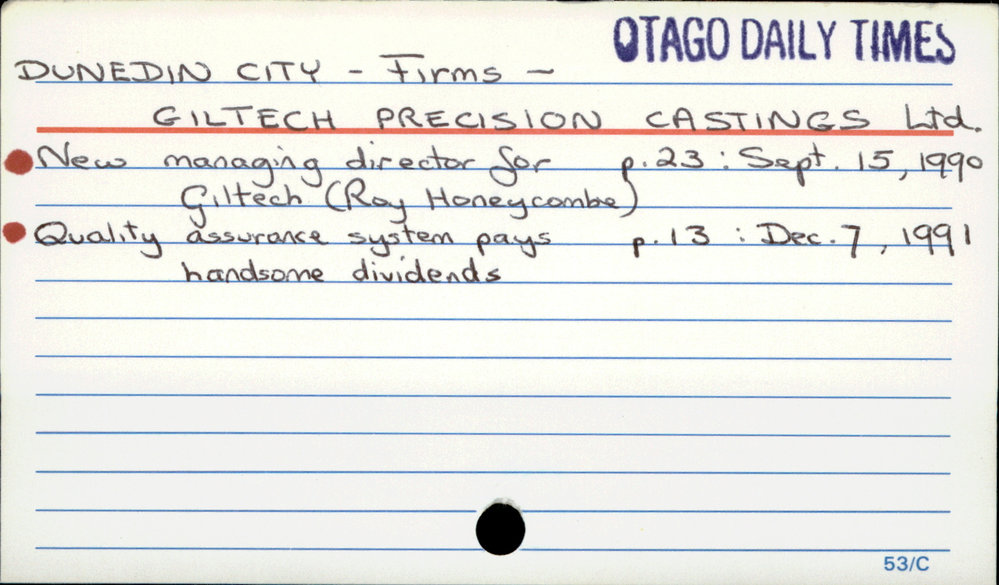 OTAGO DAILY TIMES
DUNEDIN CITY - Firms -
GILTECH PRECISION CASTINGS Ltd.
New managing director for p.23 : Sept. 15, 1990
Giltech (Roy Honeycombe)
Quality assurance system pays p.13 : Dec. 7, 1991
handsome dividends
53/C